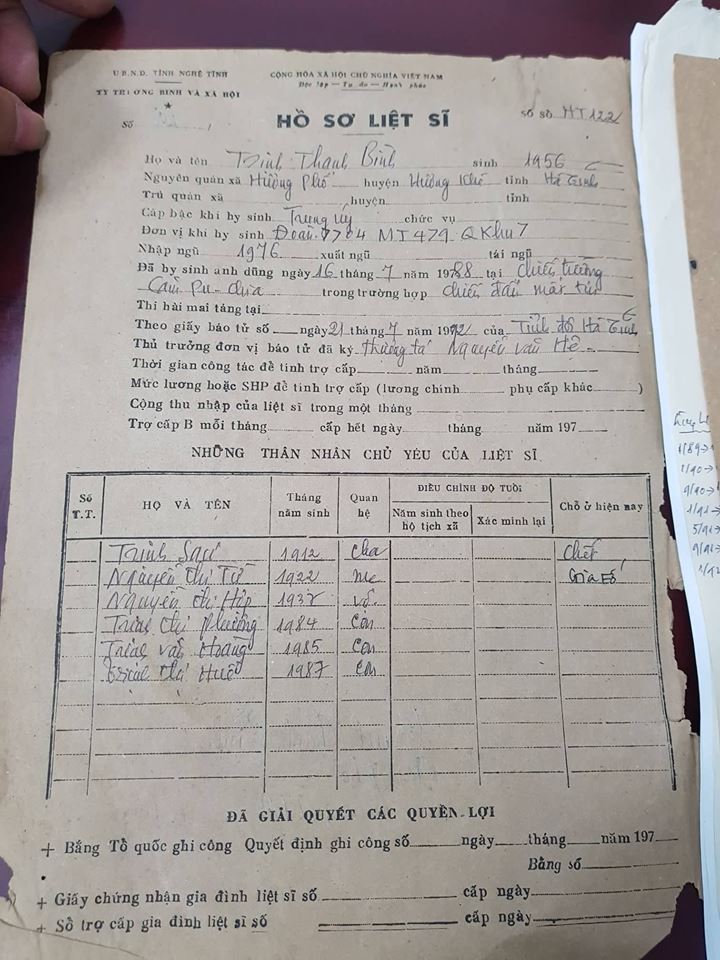 U.B.N.D. TỈNH NGHỆ TĨNH
CỘNG HÒA XÃ HỘI CHỦ NGHĨA VIỆT NAM
TY THƯƠNG BINH VÀ XÃ HỘI
Độc lập — Tự do — Hạnh phúc
★
Số
HỒ SƠ LIỆT SĨ
Số sổ HT122
Họ và tên Trịnh Thanh Bình sinh 1956
Nguyên quán xã Hương Phố huyện Hương Khê tỉnh Hà Tĩnh
Trú quán xã huyện tỉnh
Cấp bậc khi hy sinh Trung úy chức vụ
Đơn vị khi hy sinh Đoàn 7704 MT479 QKhu7
Nhập ngũ 1976 xuất ngũ tái ngũ
Đã hy sinh anh dũng ngày 16 tháng 7 năm 1988 tại Chiến trường
Căm Pu-chia trong trường hợp chiến đấu mất tích
Thi hài mai táng tại
Theo giấy báo tử số ngày 21 tháng 7 năm 1992 của Tỉnh đội Hà Tĩnh
Thủ trưởng đơn vị báo tử đã ký thượng tá Nguyễn văn Hê
Thời gian công tác để tính trợ cấp năm tháng
Mức lương hoặc SHP để tính trợ cấp (lương chính phụ cấp khác )
Cộng thu nhập của liệt sĩ trong một tháng
Trợ cấp B mỗi tháng cấp hết ngày tháng năm 197
NHỮNG THÂN NHÂN CHỦ YẾU CỦA LIỆT SĨ
Số T.T. HỌ VÀ TÊN Tháng năm sinh Quan hệ ĐIỀU CHỈNH ĐỘ TUỔI Chỗ ở hiện nay
Năm sinh theo hộ tịch xã Xác minh lại
Trịnh 1912 cha chết
Nguyễn thị Tử 1922 mẹ Già yếu
Nguyễn thị 1937 vợ
Trịnh thị Phường 1984 con
Trịnh văn Hoàng 1985 con
Trịnh thị Huê 1987 con
ĐÃ GIẢI QUYẾT CÁC QUYỀN LỢI
+ Bằng Tổ quốc ghi công Quyết định ghi công số ngày tháng năm 197
Bằng số
+ Giấy chứng nhận gia đình liệt sĩ số cấp ngày
+ Sổ trợ cấp gia đình liệt sĩ số cấp ngày